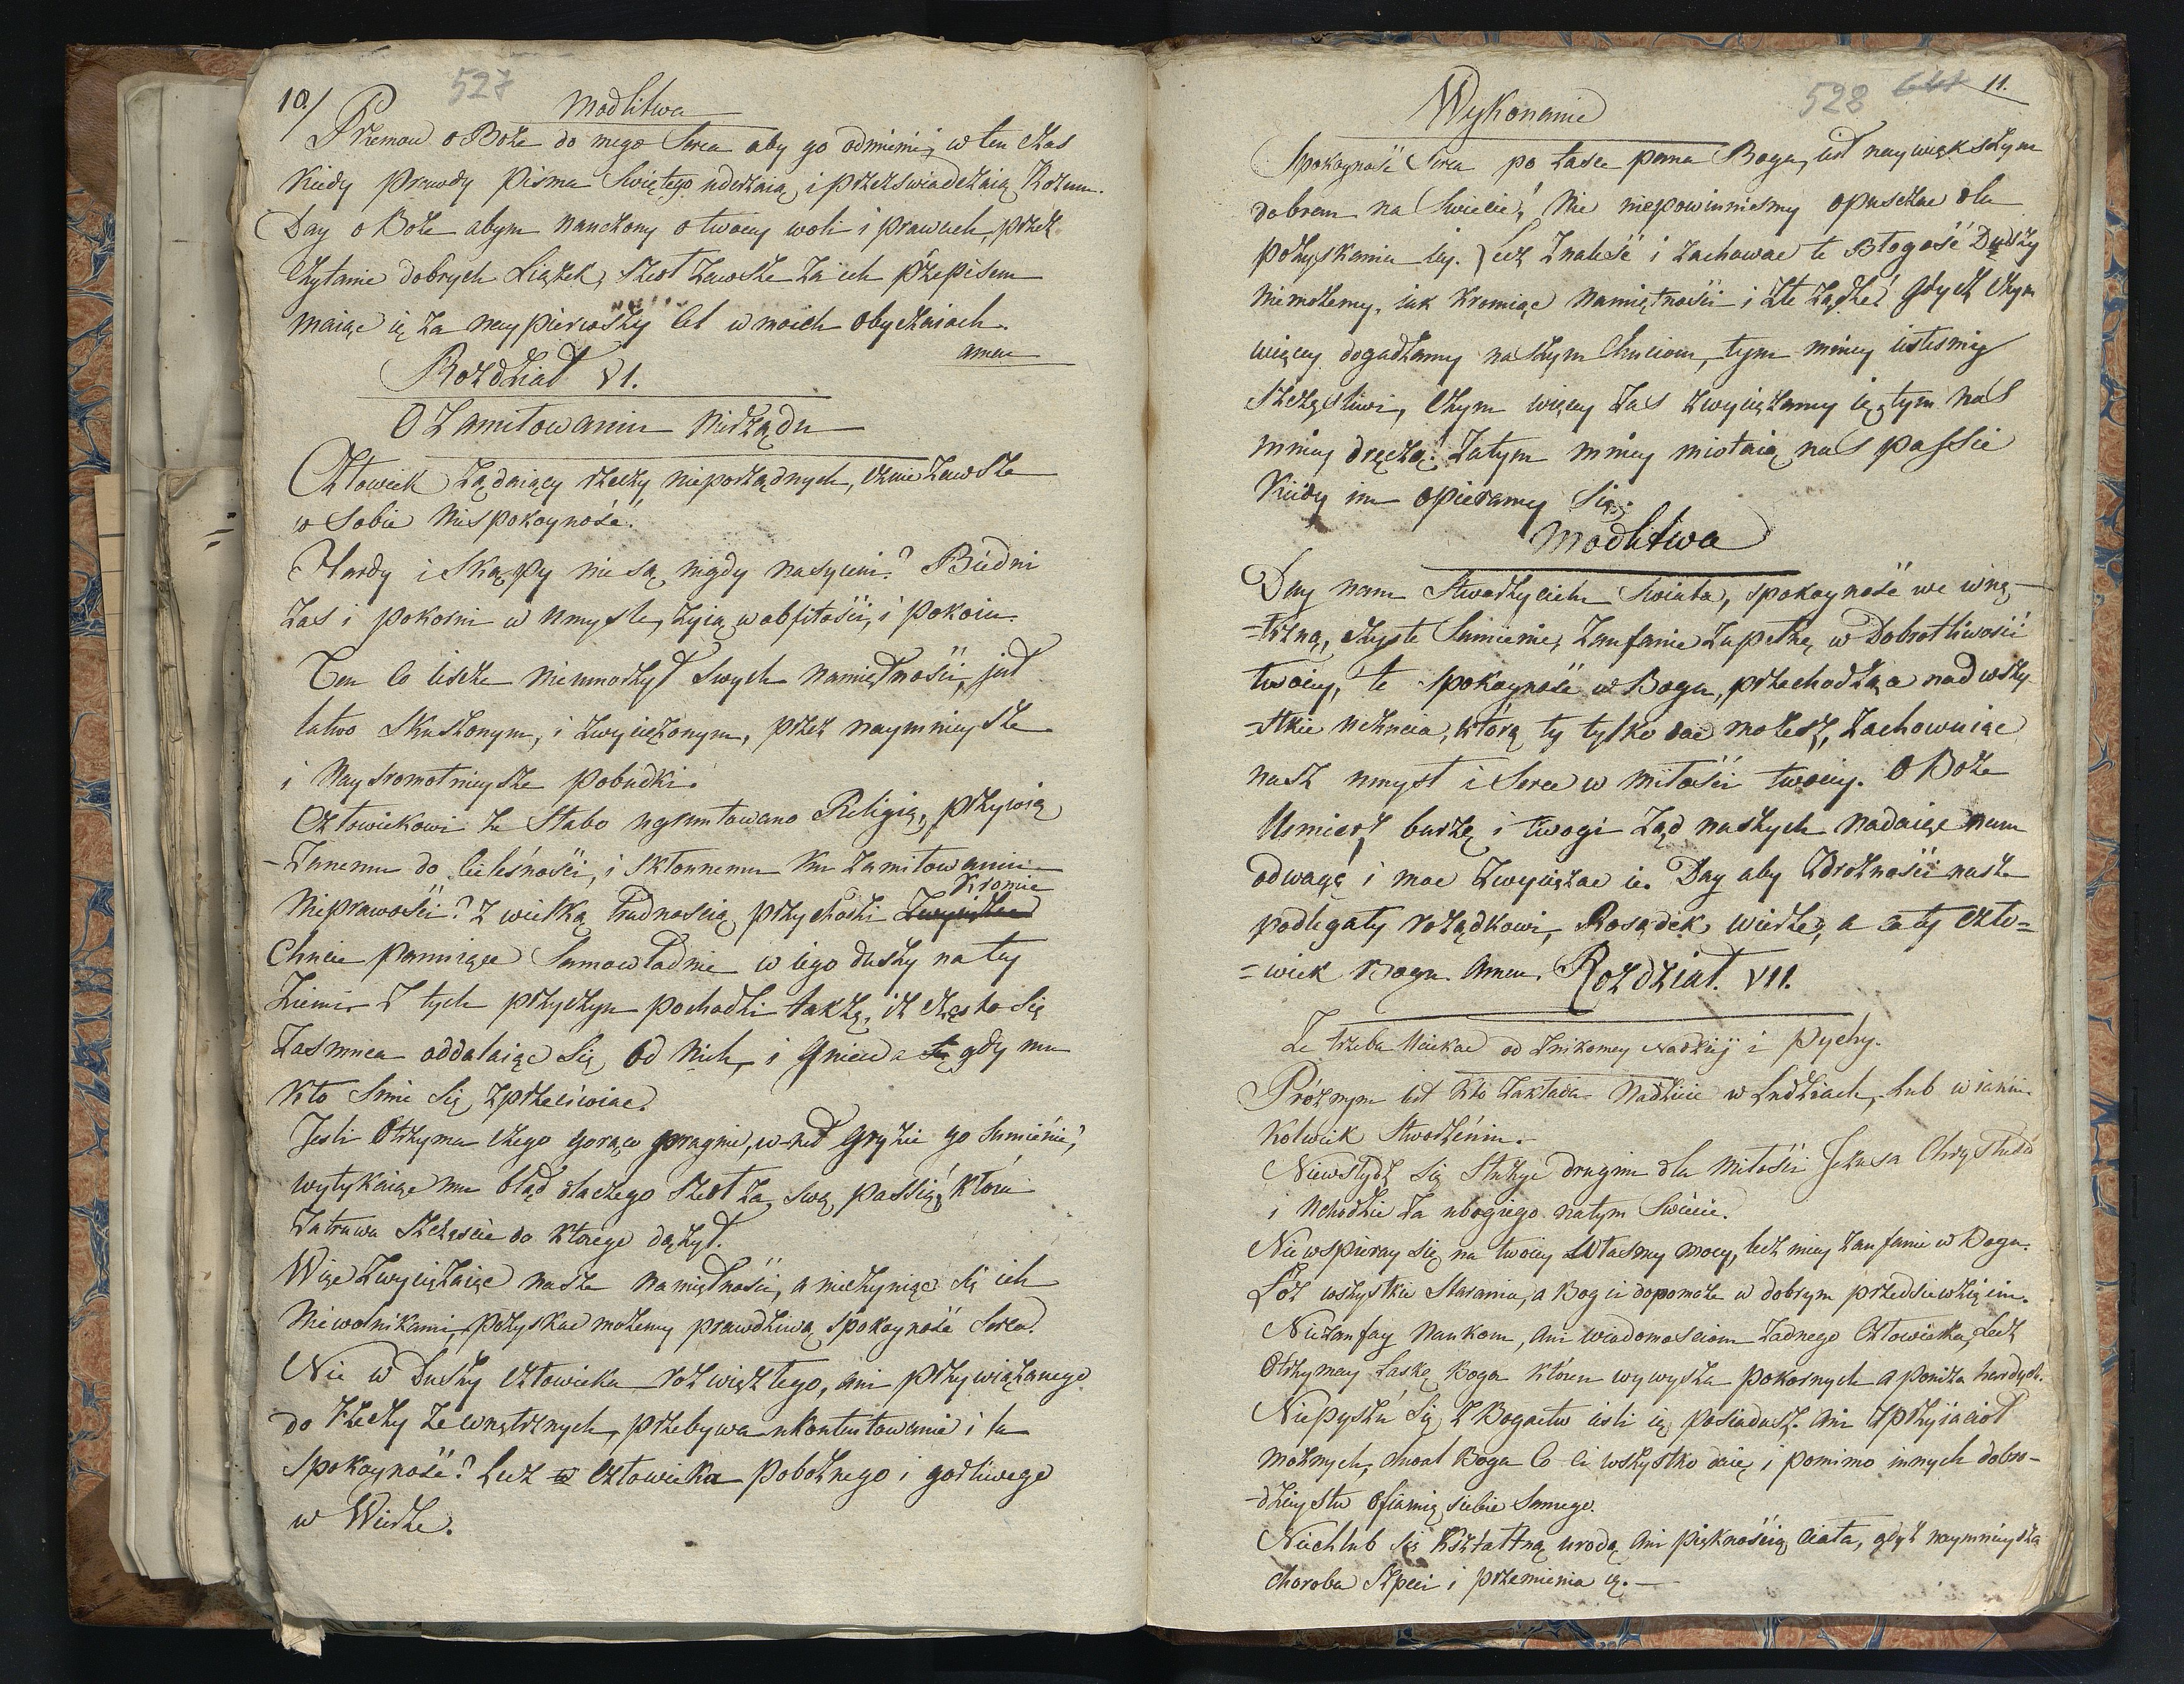 10/
527
Modlitwa
Przemow o Boże do mego Serca aby go odmienić, w ten czas
Kiedy prawdy Pisma Swiętego uderzaią i przeświadczaią Rozum.
Day o Boże abym nauczony o twoiey woli i prawach, przez
Czytanie dobrych Ksiązek, szedł zawsze za ich przepisem
maiąc ią za naypierwszy Cel w moich obyczaiach.
amen
Rozdział VI.
O Zamiłowaniu Nierządu
Człowiek żądaiący rzeczy nieporządnych, czuie zawsze
w Sobie Niespokoyność.
Hardy i Skąpy nie są nigdy nasyceni? Biedni
zaś i pokorni w umysle, żyią w obfitości, i pokoiu.
Ten co ieszcze nieumorzył Swych namiętności, jest
łatwo skuszonym, i zwyciężonym, przez naymnieysze
i Naysromotnieysze pobudki.
Człowiekowi ze Słabo ugruntowano Religią, przywią
-zanemu do cielesności, i skłonnemu ku zamiłowaniu
Nieprawości? z wielką trudnoscią przychodzi Zwyciężać Kromic
Chucie panuiące Samowładnie w iego duszy na tey
Ziemi. Z tych przyczyn pochodzi także, iż często się
Zasmuca oddalaiąc się od Nich, i Gniewa się gdy mu
Kto Smie się zprzeciwiac.
Jesli Otrzyma czego gorąco pragnie, wnet Gryzie go Sumienie,
wytykaiąc mu błąd dlaczego szedł za swą passią, która
Zatruwa Szczęście do którego dążył.
Więc Zwyciężaiąc nasze namiętności, a nieczyniąc się ich
Niewolnikami, pozyskac możemy prawdziwą spokoyność Serca.
Nie w Duszy człowieka rozwięzłego, ani przywiązanego
do rzeczy zewnętrznych, przebywa ukontentowanie i ta
spokoyność? Lecz w człowieka pobożnego i gorliwego
w Wierze.
528
11.
Wykonanie
Spokoyność Serca po Łasce pana Boga, iest naywiększym
dobrem na Swiecie, Nic niepowinniesmy opuszczac dla
pozyskania iey. Lecz Znaleść i zachowac tę Błogość Duszy
niemożemy, iak kromiąc Namiętności i złe żądze! Gdyż czym
więcey dogadzamy naszym Chuciom, tym mniey iestesmy
szczęsliwi, czym więcey zaś zwyciężamy ię, tym nas
mniey dręczą. Zatym mniey miotaią nas passie
Kiedy im opieramy się.
Modlitwa
Day nam Stworzycielu Swiata, spokoyność we wnę-
=trzną, czyste Sumienie, Zaufanie Zupełne, w Dobrotliwości
twoiey, tę spokoyność w Bogu, przechodzącą nad wszy
=stkie uczucia, którą ty tylko dac możesz, zachowuiąc
nasz umysł i Serce w miłości twoiey. O Boże
Usmierz burzę i trwogi żądz naszych nadaiąc nam
odwagę i moc zwyciężac ie. Day aby zdrożności nasze
podlegały roządkowi, Rosądek, wierze, a cały czło=
=wiek Bogu. Amen. Rozdział. VII.
Ze trzeba Uciekac od Znikomey Nadziei i Pychy.
Próżnym iest kto zakłada Nadzieie w Ludziach, lub w iakim-
Kolwiek Stworzeniu.
Niewstydz się Służyc drugim dla miłości Jezusa Chrystusa
i Uchodzic za ubogiego natym Swiecie.
Nie wspieray się na twoiey Własney mocy, lecz miey zaufanie w Bogu.
Łóż wszystkie Starania, a Bog ci dopomoże w dobrym przedsiewzięciu.
Nieżaufay Naukom, Ani wiadomosciom żadnego Człowieka, Lecz
Otrzymay Łaskę Boga który wywysza pokornych a poniża hardych.
Niepysznź się z Bogactw iesli ię posiadasz. Ani z przyiaciół
możnych, chwal Boga Co ci wszystko daie, i pomimo innych dobro-
-dzieystw Ofiaruię siebie Samego.
Niechlub się Kształtną urodą Ani pięknością Ciała, gdyż naymnieysza
choroba Szpeci i przemienia ią.